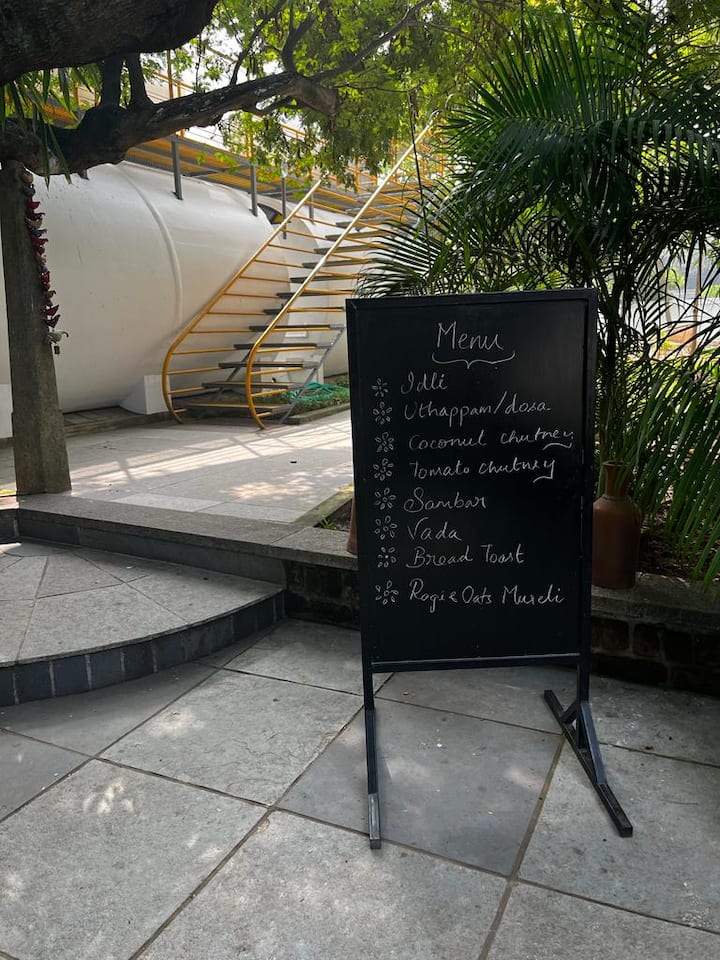 Menu
Idli
Uthappam/dosa
Coconut chutney
Tomato chutney
Sambar
Vada
Bread Toast
Ragi & Oats Museli